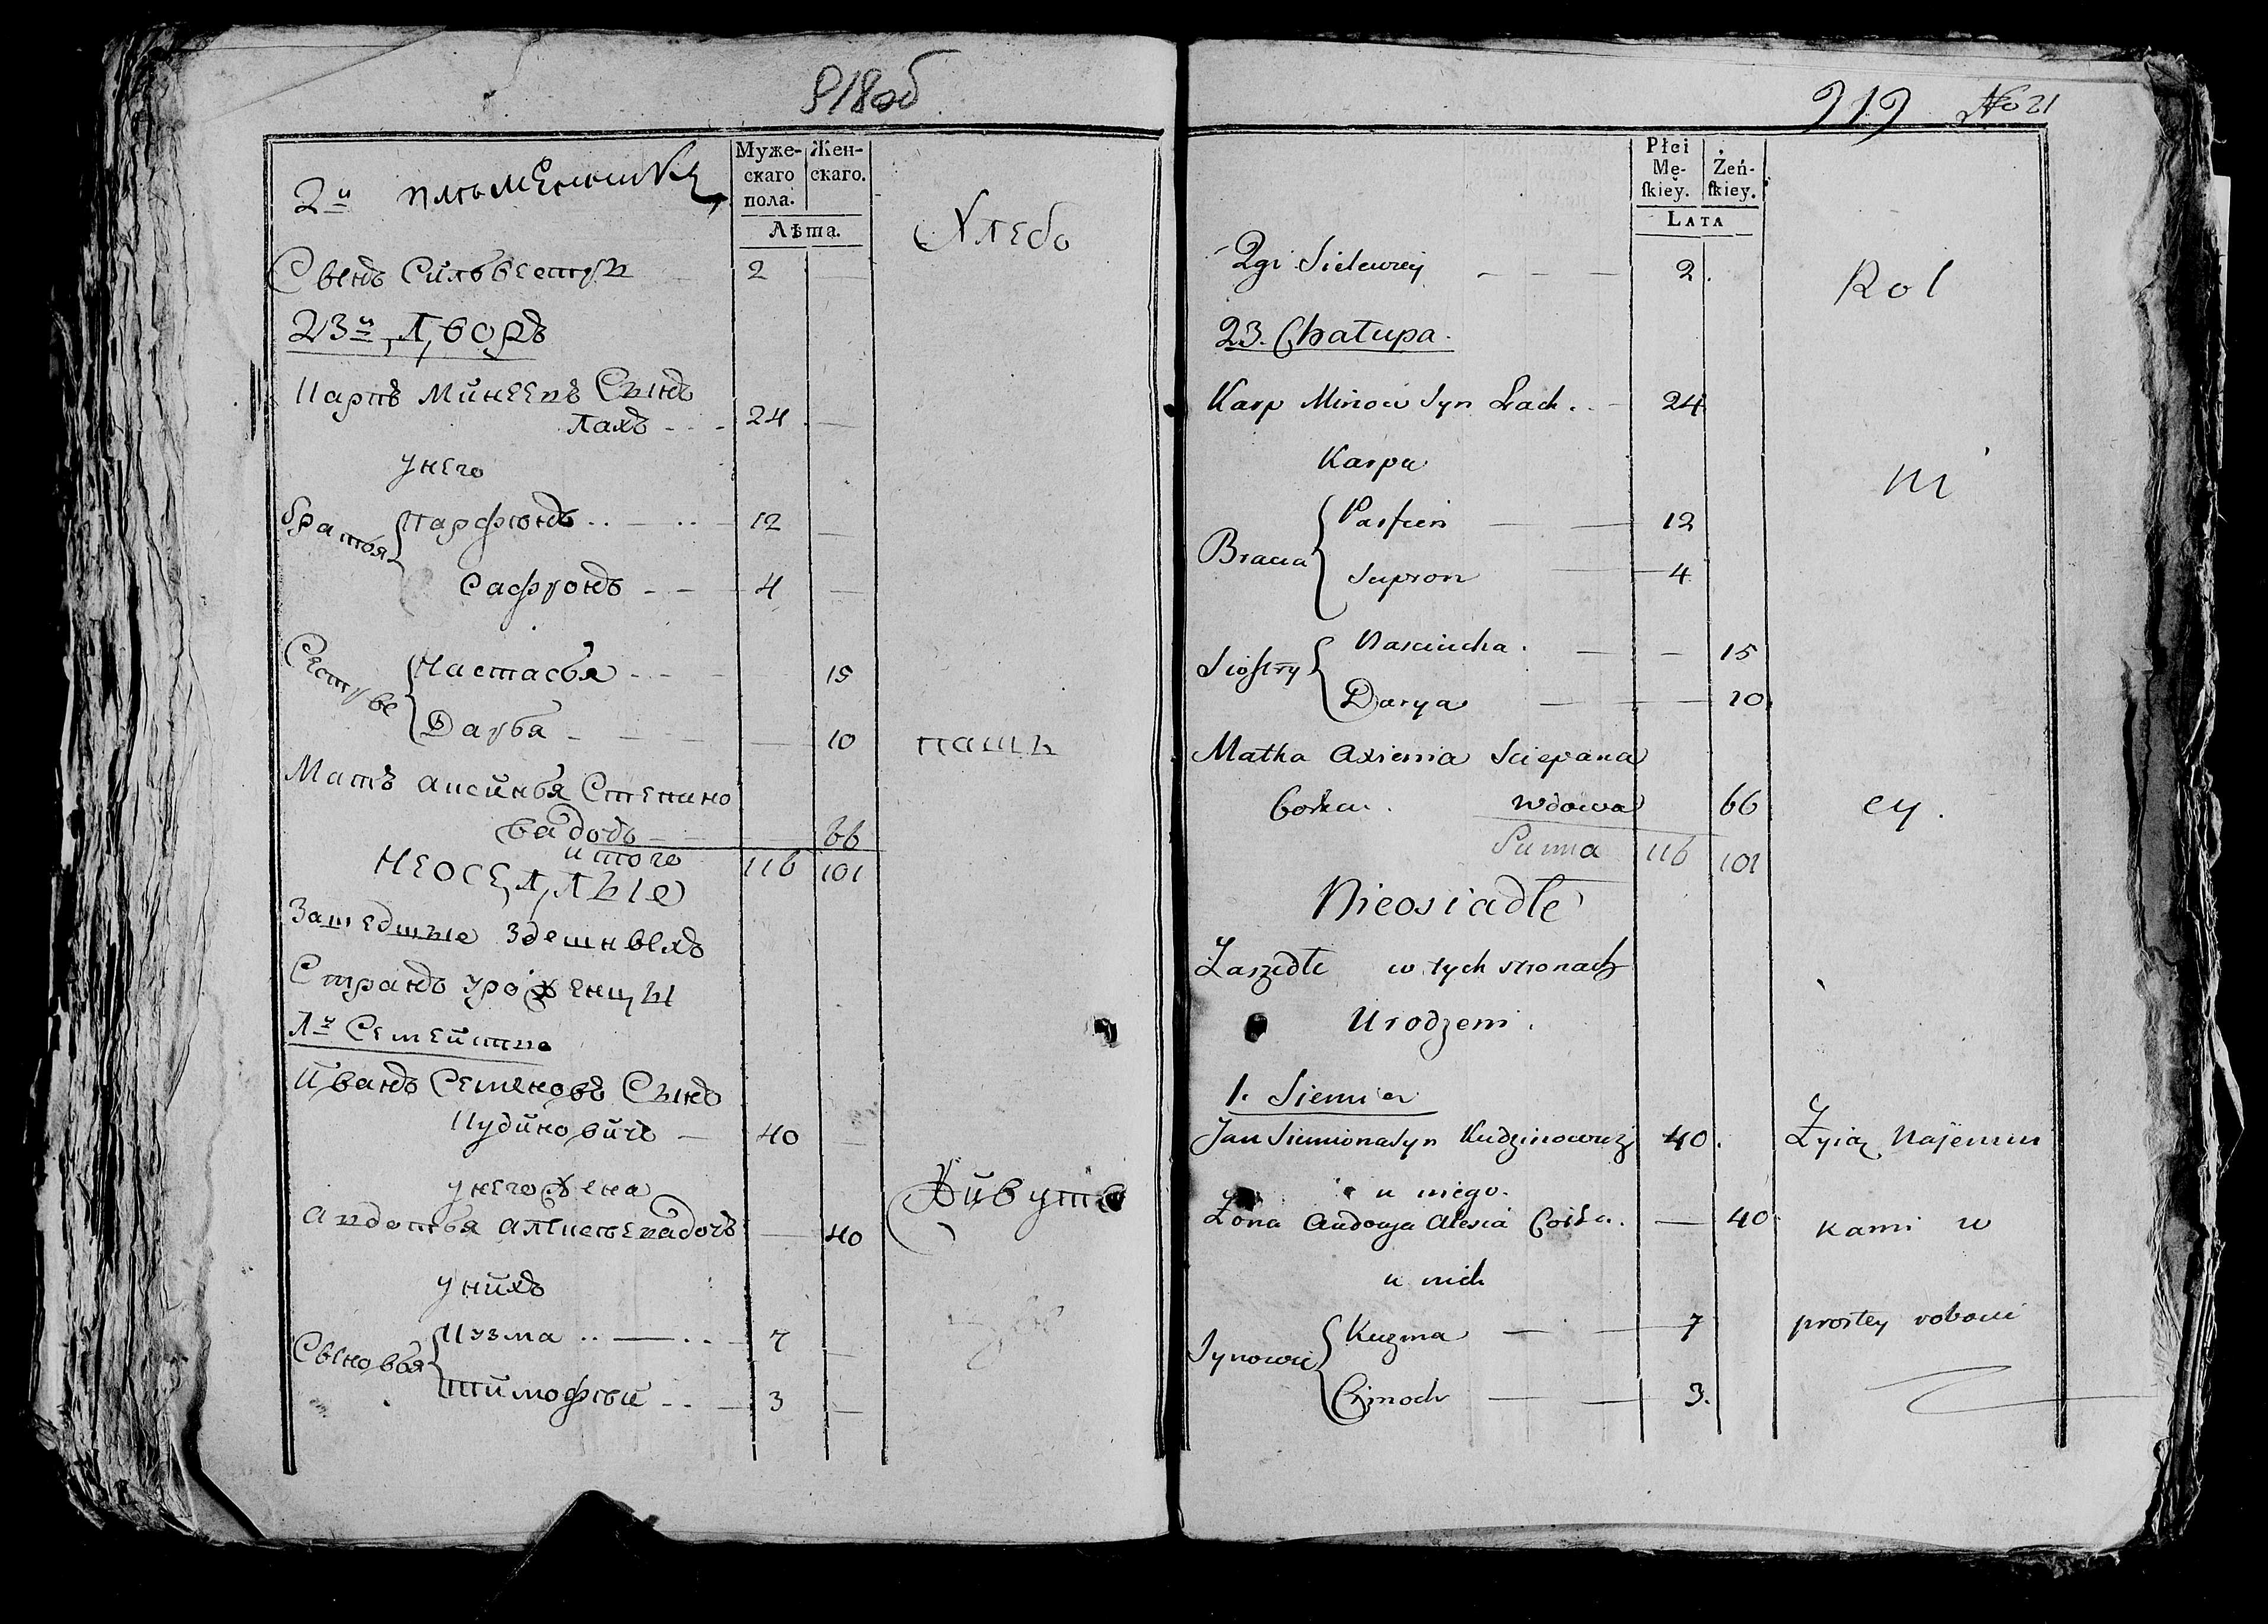 918об
Муже-
скаго
пола.
Жен-
скаго.
Лѣта.
2й
Хлебо
Сынъ Сильвестръ 2
23й Дворъ
Карпъ Минеевъ Сынъ
Лахъ 24
у него
братья
Парфюнъ 12
Сафронъ 4
Сестры
Настасья 15
Дарья 10
пашцы
Мать Аксинья Степано
ва дочь 66
итого 116 101
НЕОСЕДЛЫЕ
Зашедшые здешныхъ
Странъ уроженцы
Иванъ Семеновъ Сынъ
Кудиновичъ 40
у него жена
Авдотья Алексеева дочь 40
Живутъ
у нихъ
Сыновья
Кузма 7
Тимофей 3
919 No 21
Płci
Mę-
ſkiey.
Żeń-
ſkiey.
Lata
2gi Sielwery 2.
Rol
23. Chałupa.
Karp Minow Syn Lach 24
Karpa
ni
Bracia
Parfien 12
Supron 4
Siostry
Nasciucha 15
Darya 10
Matka Axienia Sciepana
Corka. wdowa 66
cy.
Summa 116 101
Nieosiadłe
Zaszedłe w tych stronach
Urodzeni.
1. Siemia
Jan Siemiona Syn Kudzinowicz 40.
Żyią Najemni
u niego
Żona Audocja Alexia Corka. 40
kami w
u nich
Synowie
Kuzma 7
prostey roboci
Cimoch 3.